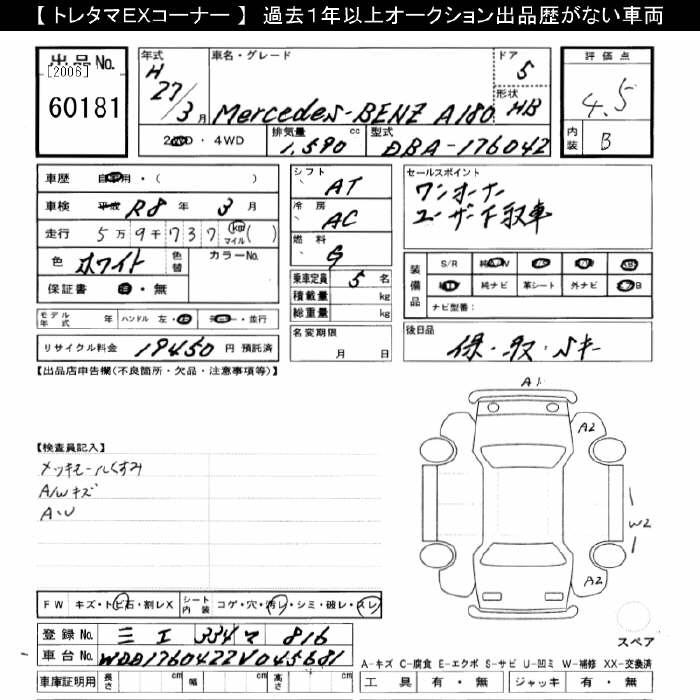 【 トレタマEXコーナー 】 過去１年以上オークション出品歴がない車両
出品No.
[2006]
60181
年式
H
27/3月
車名・グレード
Mercedes-BENZ A180
ドア
5
形状
HB
2WD・4WD
排気量 1,590 cc
型式 DBA-176042
評価点
4.5
内装 B
車歴 自家用・( )
車検 平成 R8年 3月
走行 5万9千737 km マイル( )
色 ホワイト 色替
カラーNo.
保証書 有・無
モデル年式 年
ハンドル 左・右
ディーラー・並行
リサイクル料金 19450 円 預託済
シフト AT
冷房 AC
燃料 G
乗車定員 5 名
積載量 kg
総重量 kg
名変期限
月 日
セールスポイント
ワンオーナー
ユーザー下取車
装備品
S/R 純A/W P/S P/W ABS
純TV 純ナビ 革シート 外ナビ エアB
ナビ型番：
後日品
保・取・Sキー
【出品店申告欄(不良箇所・欠品・注意事項等)】
【検査員記入】
メッキモールくすみ
A/Wキズ
A・U
A1
A2
W2
A2
スペア
FW キズ・トビ石・割レX
シート内装 コゲ・穴・汚レ・シミ・破レ・スレ
登録No. 三エ 334 マ 816
車台No. WDD1760422V045681
車庫証明用 長さ cm 幅 cm 高さ cm
A-キズ C-腐食 E-エクボ S-サビ U-凹ミ W-補修 XX-交換済
工具 有・無 ジャッキ 有・無